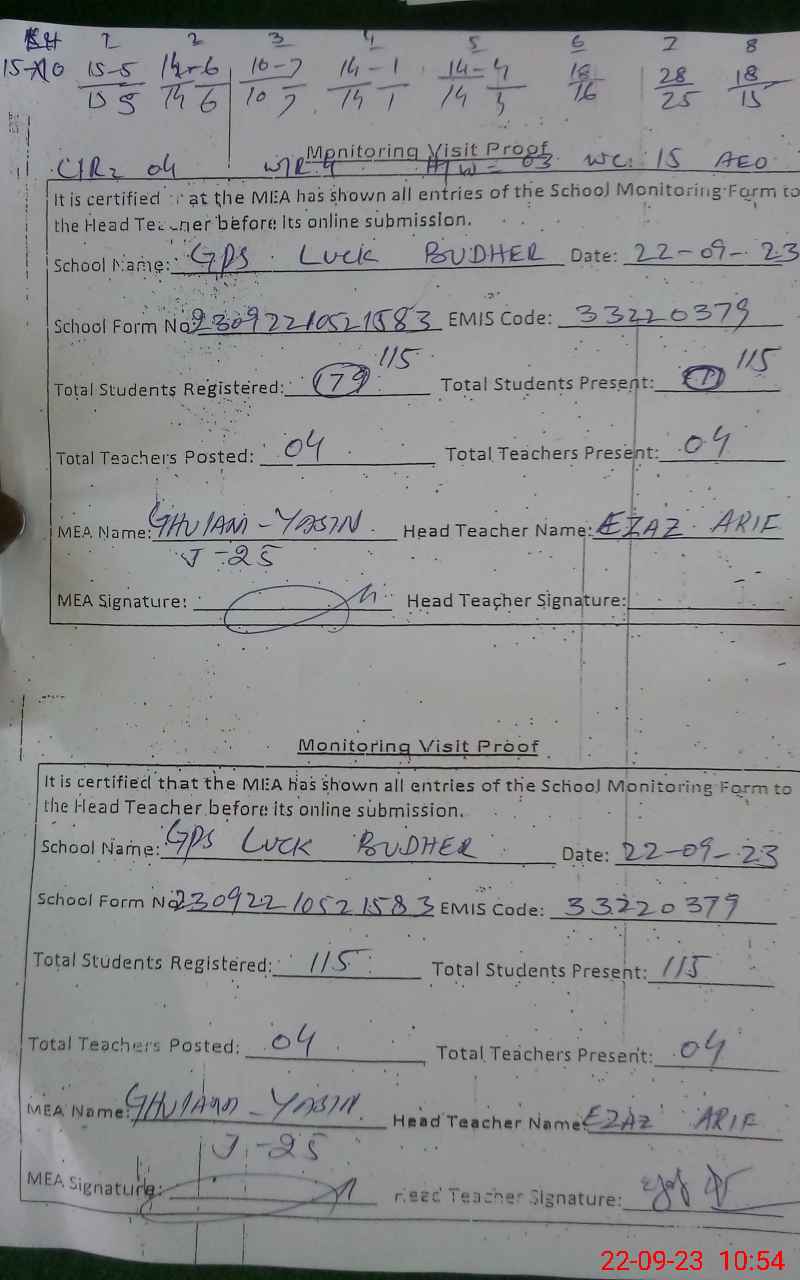 1 2 3 4 5 6 7 8
15-10 15-5 14-6 10-7 14-1 14-4 18 28 18
15 5 14 6 10 7 14 1 14 16 25 15
Monitoring Visit Proof
04 03 WC: 15 AEO
It is certified at the MEA has shown all entries of the School Monitoring Form to
the Head Teacher before its online submission.
School Name: GPS LUCK BUDHER Date: 22-09-23
School Form No 23092210521583 EMIS Code: 33220379
Total Students Registered: 179 115 Total Students Present: 115
Total Teachers Posted: 04 Total Teachers Present: 04
MEA Name: GHULAM-YASIN Head Teacher Name: EZAZ ARIF
J-25
MEA Signature: Head Teacher Signature:
Monitoring Visit Proof
It is certified that the MEA has shown all entries of the School Monitoring Form to
the Head Teacher before its online submission.
School Name: GPS LUCK BUDHER Date: 22-09-23
School Form No 23092210521583 EMIS Code: 33220379
Total Students Registered: 115 Total Students Present: 115
Total Teachers Posted: 04 Total Teachers Present: 04
MEA Name: GHULAM-YASIN Head Teacher Name EZAZ ARIF
J-25
MEA Signature: Head Teacher Signature:
22-09-23 10:54